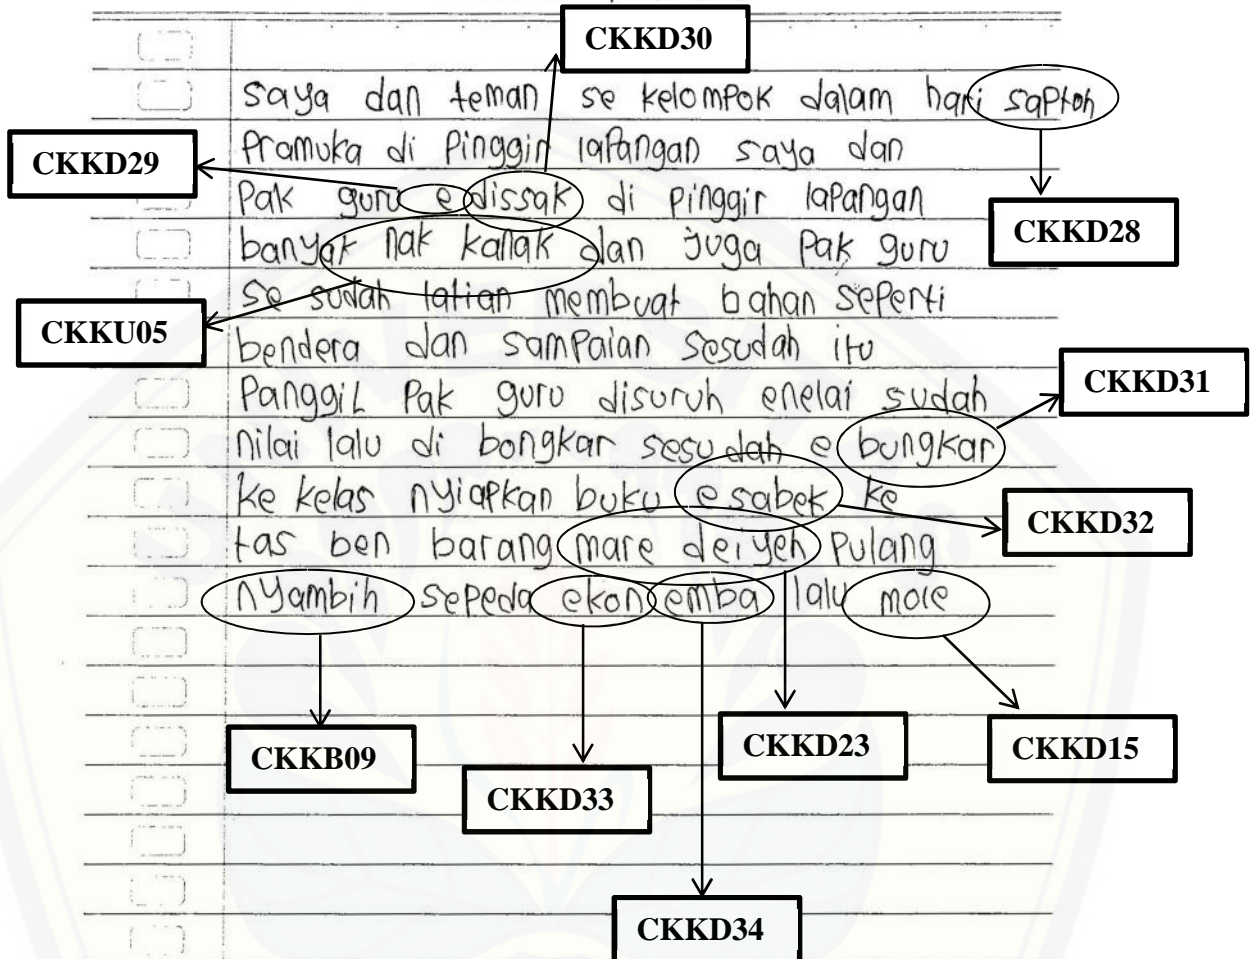 CKKD30
saya dan teman se kelompok dalam hari saptoh
CKKD29
Pramuka di Pinggir lapangan saya dan
Pak guru e dissak di pinggir lapangan
CKKD28
banyak nak kanak dan juga Pak guru
se sudah latian membuat bahan seperti
CKKU05
bendera dan sampaian sesudah itu
Panggil Pak guru disuruh enelai sudah
CKKD31
nilai lalu di bongkar sesudah e bungkar
ke kelas nyiapkan buku e sabek ke
CKKD32
tas ben barang mare deiyeh Pulang
nyambih sepeda ekon emba lalu mole
CKKB09
CKKD33
CKKD23
CKKD15
CKKD34